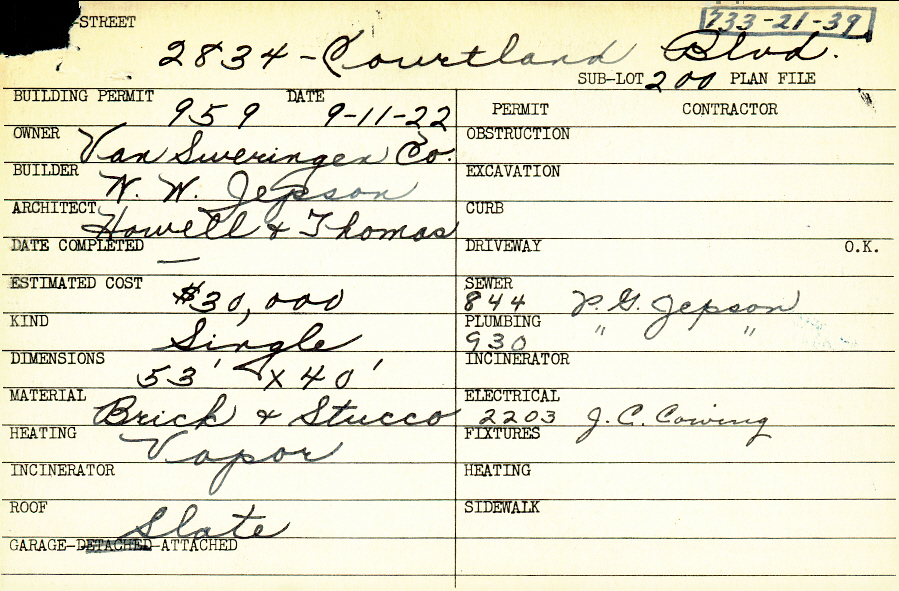 STREET
733-21-39
2834 - Courtland Blvd.
SUB-LOT 200 PLAN FILE
BUILDING PERMIT 959 DATE 9-11-22
OWNER Van Sweringen Co.
BUILDER W. W. Jepson
ARCHITECT Howell & Thomas
DATE COMPLETED —
ESTIMATED COST $30,000
KIND Single
DIMENSIONS 53' x 40'
MATERIAL Brick & Stucco
HEATING Vapor
INCINERATOR
ROOF Slate
GARAGE-DETACHED-ATTACHED
PERMIT CONTRACTOR
OBSTRUCTION
EXCAVATION
CURB
DRIVEWAY O.K.
SEWER
844 P. G. Jepson
PLUMBING
930 " "
INCINERATOR
ELECTRICAL
2203 J. C. Cowing
FIXTURES
HEATING
SIDEWALK